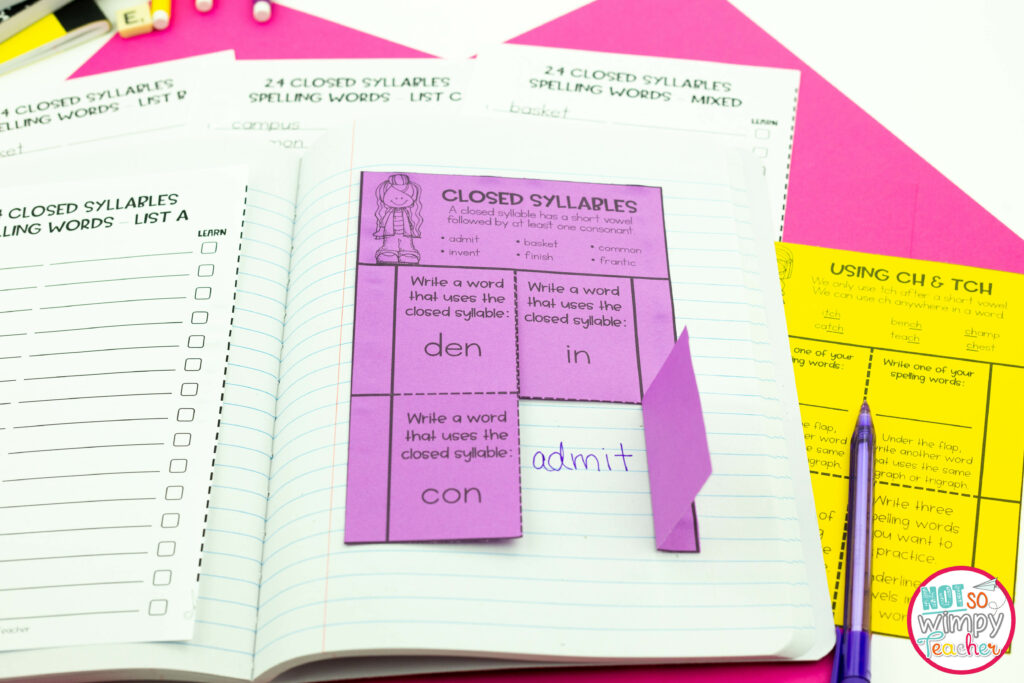 E.
2.4 CLOSED SYLLABLES
SPELLING WORDS - LIST C
campus
2.4 CLOSED SYLLABLES
SPELLING WORDS - MIXED
basket
LEARN
CLOSED SYLLABLES
LIST B
CLOSED SYLLABLES
WORDS - LIST A
LEARN
CLOSED SYLLABLES
A closed syllable has a short vowel
followed by at least one consonant.
• admit • basket • common
• invent • finish • frantic
Write a word
that uses the
closed syllable:
den
Write a word
that uses the
closed syllable:
in
Write a word
that uses the
closed syllable:
con
admit
USING CH & TCH
We only use tch after a short vowel.
We can use ch anywhere in a word.
bench champ
catch teach chest
one of your
words:
Write one of your
spelling words:
Under the flap,
write another word
that uses the same
digraph or trigraph.
Write three
spelling words
you want to
practice.
NOT SO
Wimpy
Teacher